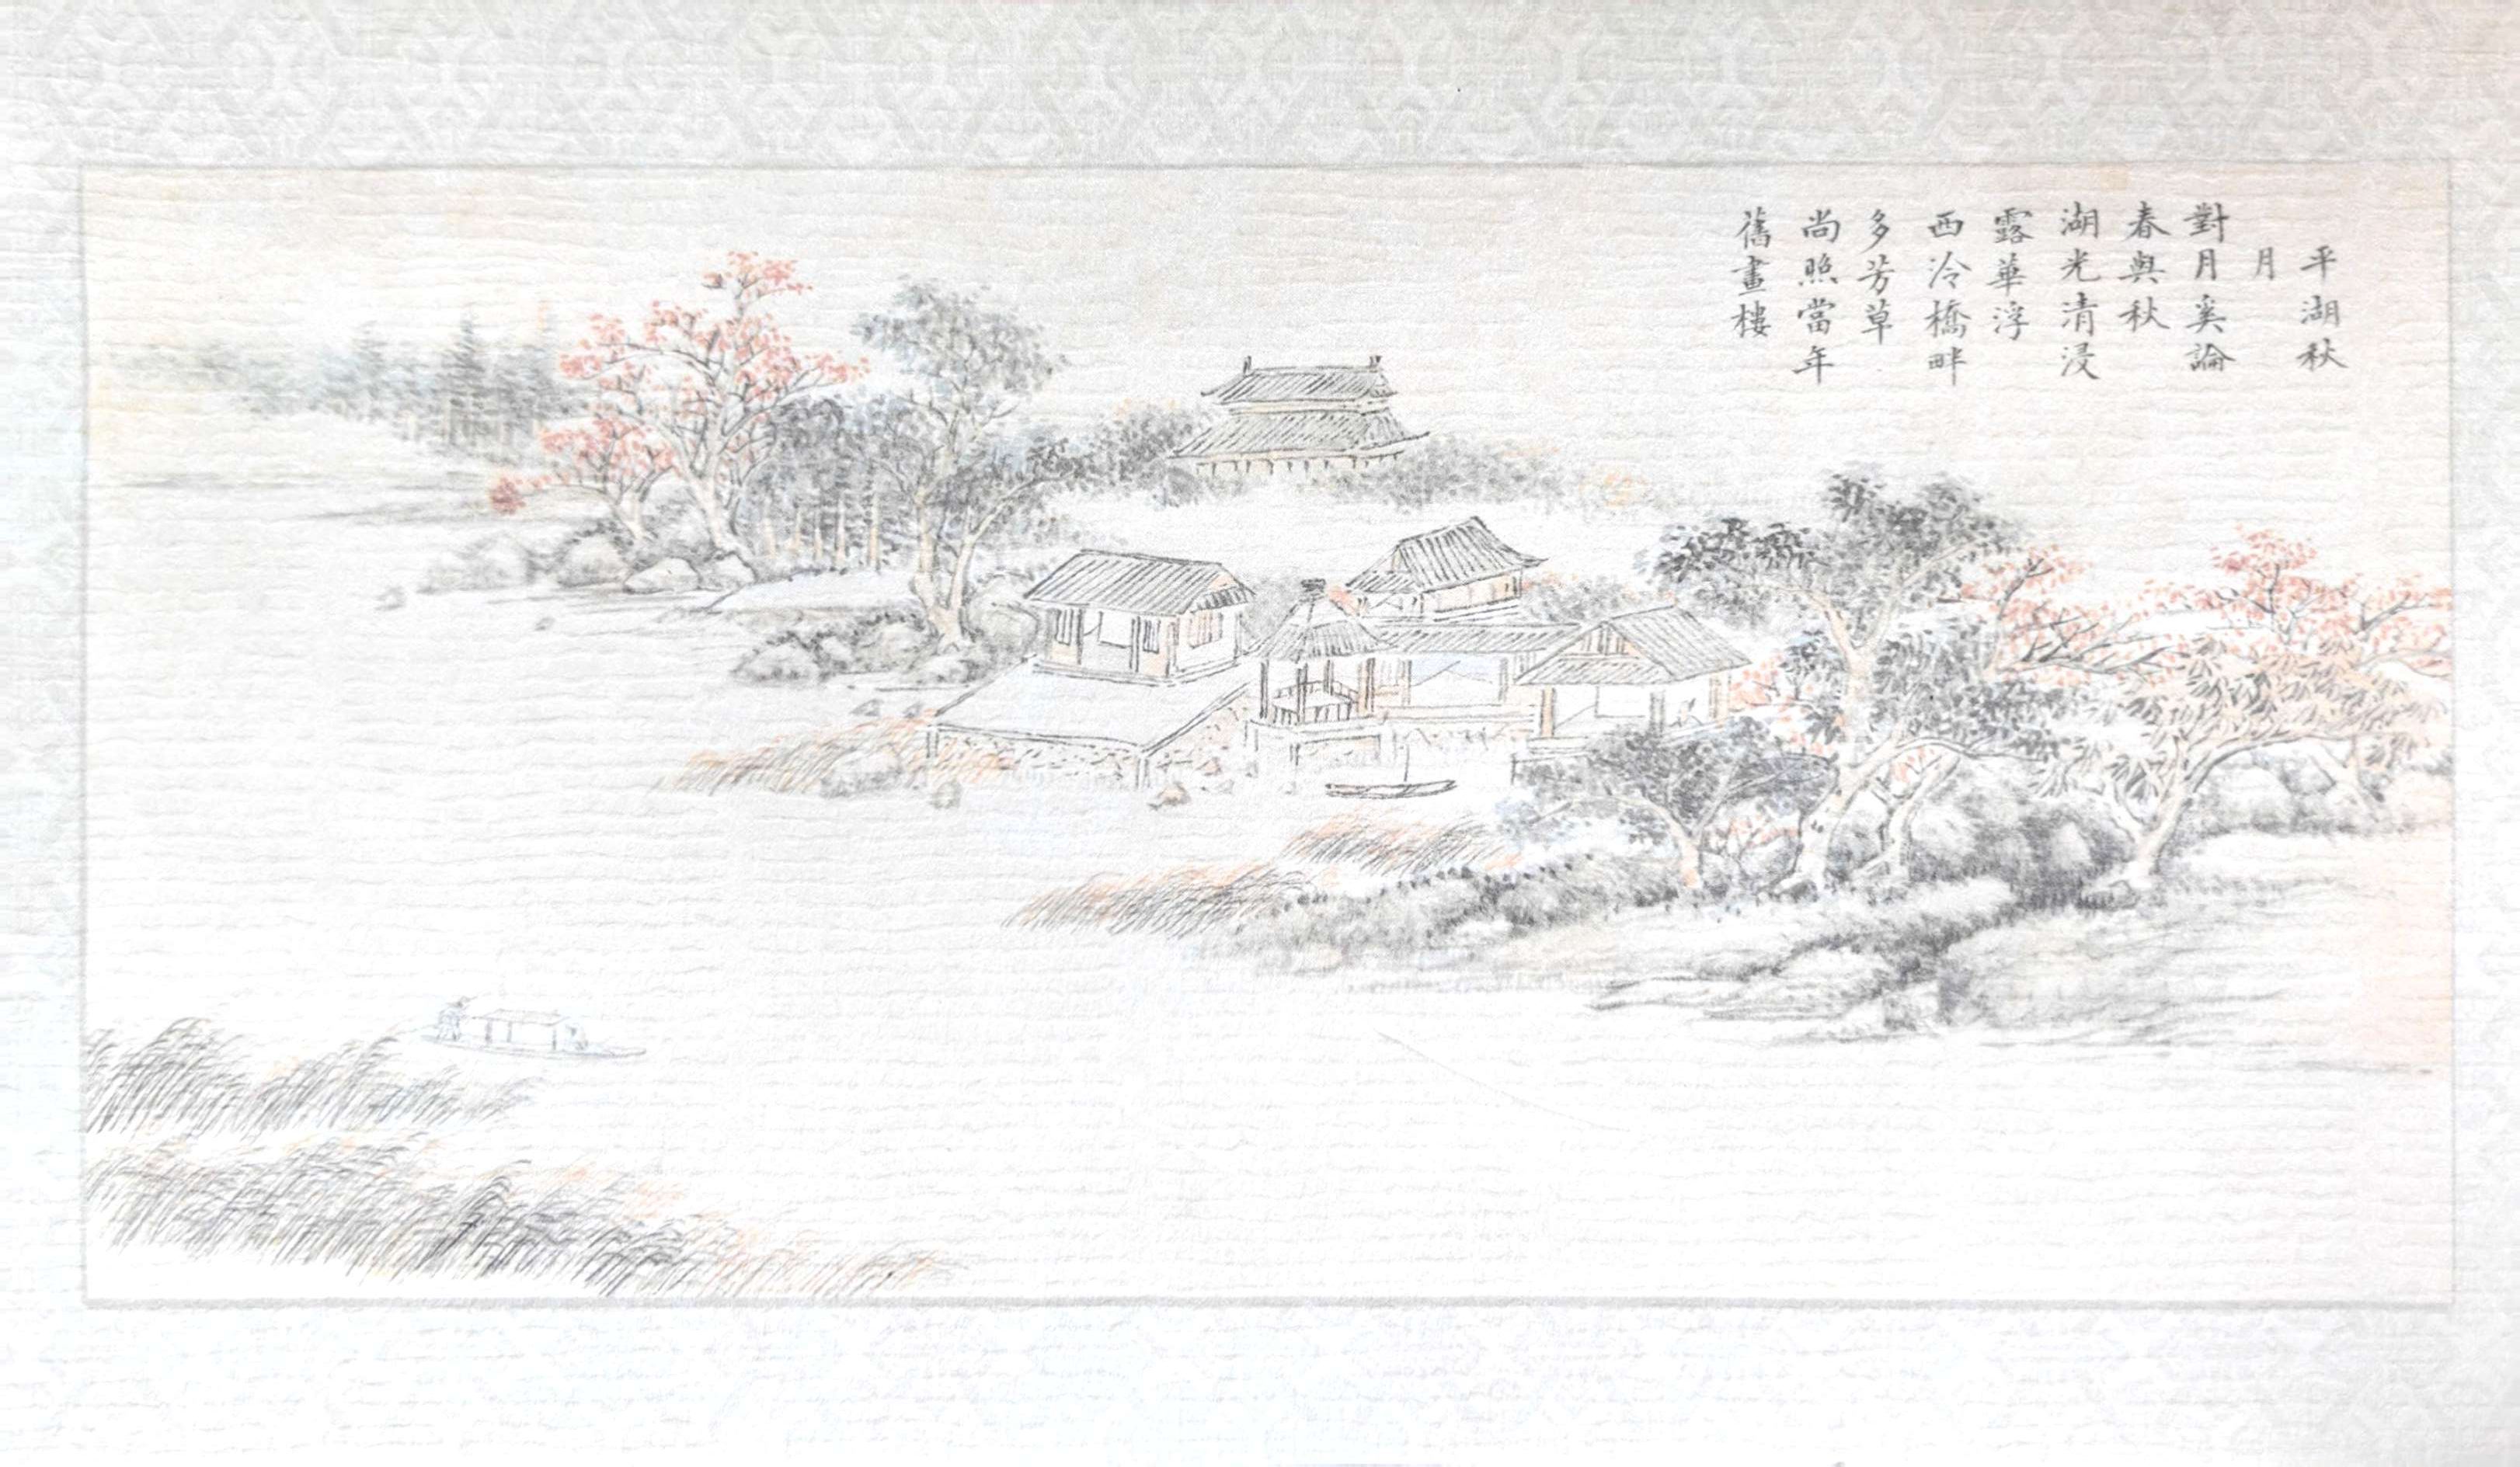 平湖秋
月
對月奚論
春與秋
湖光清浸
露華浮
西泠橋畔
多芳草
尚照當年
舊畫樓